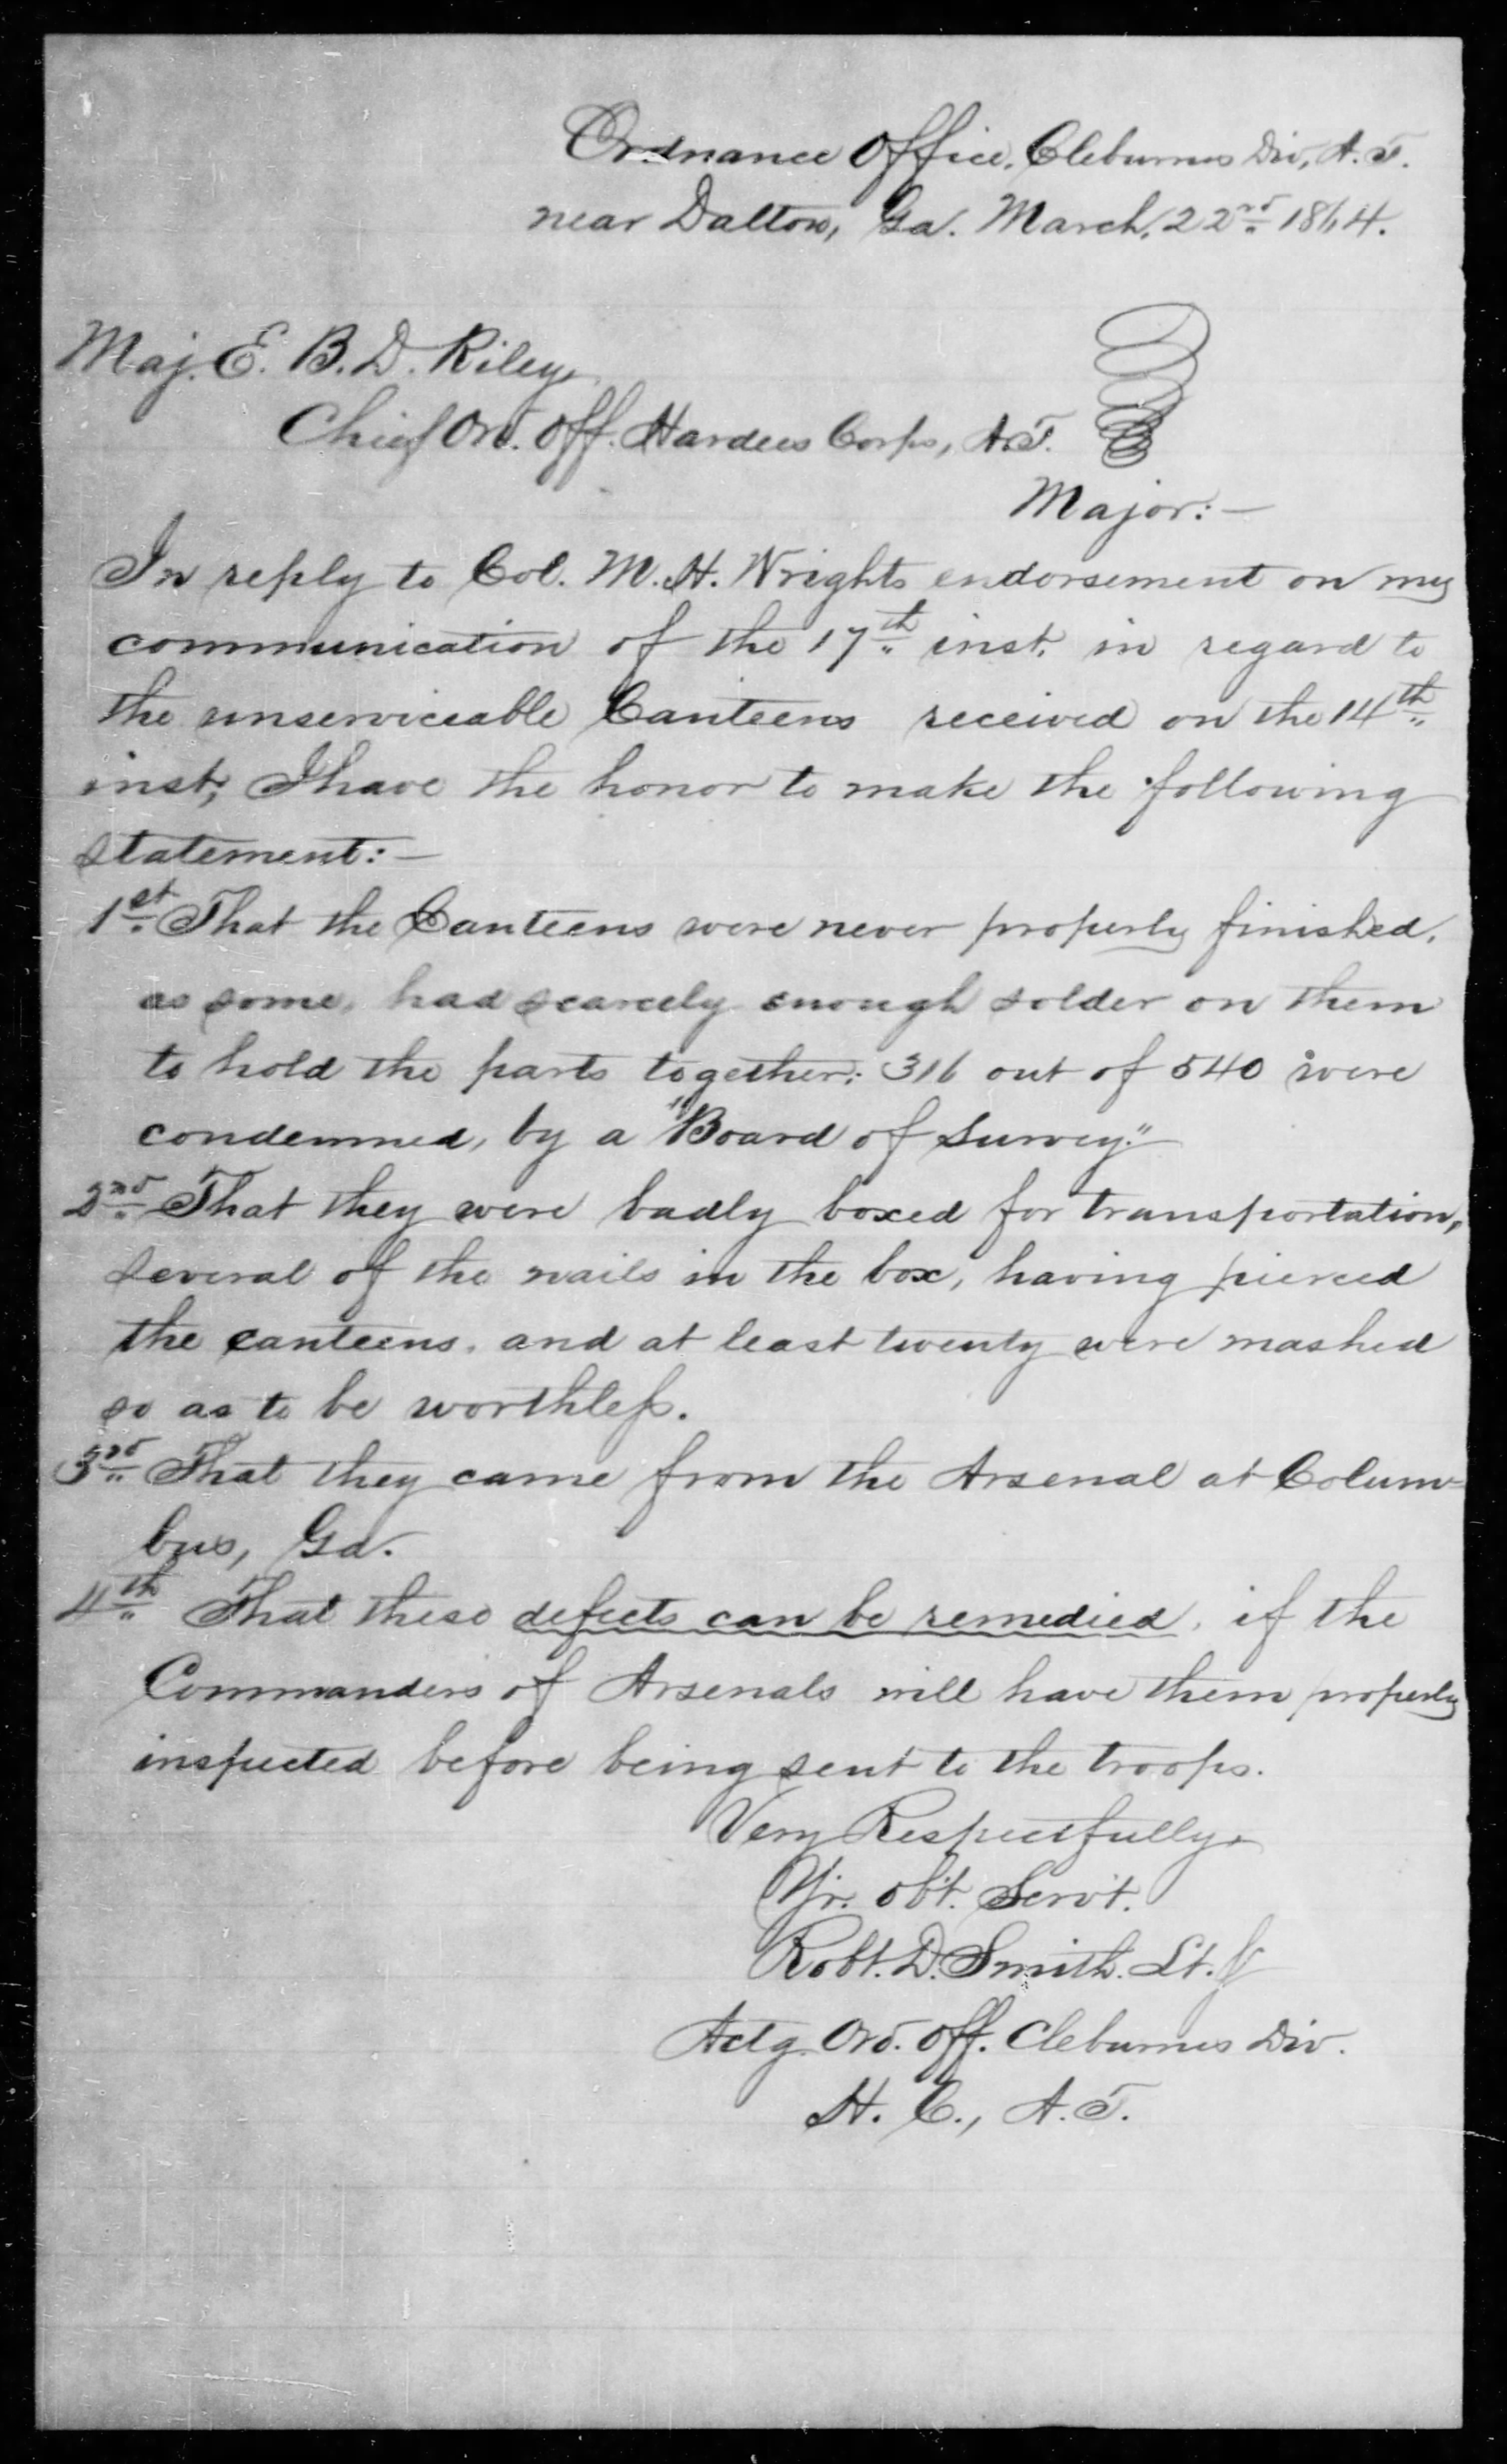 Ordnance Office, Cleburnes Div, A. T.
near Dalton, Ga. March, 22nd 1864.
Maj. E. B. D. Riley,
Chief Ord. Off. Hardees Corps, A.T.
Major:—
In reply to Col. M. H. Wrights endorsement on my
communication of the 17th inst. in regard to
the unserviceable Canteens received on the 14th
inst, I have the honor to make the following
statement:—
1st That the Canteens were never properly finished,
as some, had scarcely enough solder on them
to hold the parts together; 316 out of 540 were
condemned, by a "Board of Survey."
2nd That they were badly boxed for transportation,
several of the nails in the box, having pierced
the canteens, and at least twenty were mashed
so as to be worthless.
3rd That they came from the Arsenal at Colum-
bus, Ga.
4th That these defects can be remedied, if the
Commanders of Arsenals will have them properly
inspected before being sent to the troops.
Very Respectfully,
Yr. obt. Servt.
Robt. D. Smith. Lt. &
Actg. Ord. Off. Cleburnes Div.
H. C., A. T.